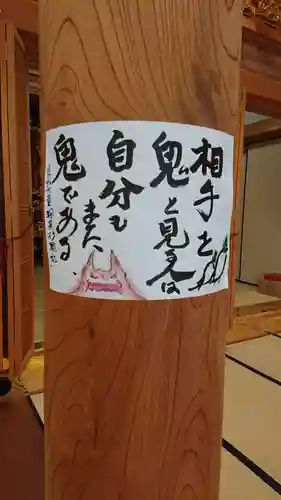 相手を
鬼と見る
自分も
また
鬼である